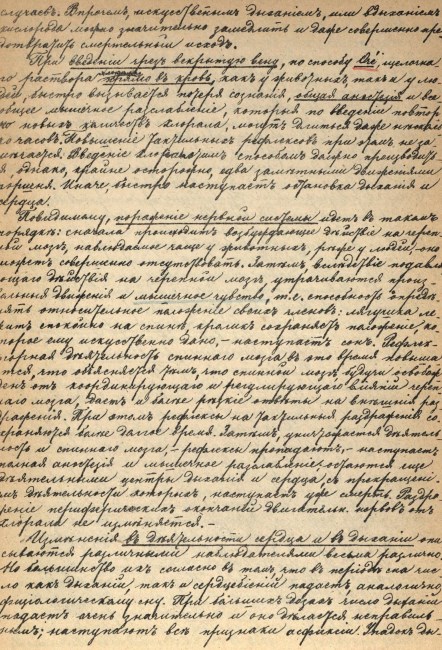 случаевъ. Впрочемъ, искусственнымъ дыханіемъ, или вдыханіемъ
кислорода можно значительно замедлить и даже совершенно пре
дотвратить смертельный исходъ.
При введеніи чрезъ вскрытую вену, по способу Oré, щелочна
го раствора хлорала прямо въ кровь, какъ у животныхъ такъ и у лю
дей, быстро вызывается потеря сознанія, общая анестезія и все
общее мышечное разслабленіе, которыя по введеніи повтор
но новыхъ количествъ хлорала, могутъ длиться даже нѣсколь
ко часовъ. Повышеніе рефлексовъ при этомъ не за
мѣчается. Введеніе этимъ способомъ должно производит
ся, однако, крайне осторожно, едва замѣтными движеніями
поршня. Иначе, быстро наступаетъ остановка дыханія и
сердца.
Повидимому, пораженіе нервной системы идетъ въ такомъ
порядкѣ: сначала происходитъ возбуждающее дѣйствіе на череп
ной мозгъ, наблюдаемое чаще у животныхъ, рѣже у людей; оно
можетъ совершенно отсутствовать. Затѣмъ, вслѣдствіе подавля
ющаго дѣйствія на черепной мозгъ, утрачиваются произ
вольныя движенія и мышечное чувство, т.е. способность опредѣ
лять относительное положеніе своихъ членовъ: лягушка ле
житъ спокойно на спинѣ, кроликъ сохраняетъ положеніе, ко
торое ему искусственно дано, – наступаетъ сонъ. Рефлек
торная дѣятельность спинного мозга въ это время повыша
ется, что объясняется тѣмъ, что спинной мозгъ, будучи освобож
денъ отъ координирующаго и регулирующаго вліяній череп
наго мозга, даетъ и болѣе рѣзкіе отвѣты на внѣшнія раз
драженія. При этомъ рефлексы на раздраженія со
храняются болѣе долгое время. Затѣмъ, уничтожается дѣятель
ность и спинного мозга, – рефлексы пропадаютъ, – наступаетъ
полная анестезія и мышечное разслабленіе; остаются еще
дѣятельными центры дыханія и сердца, съ прекращені
емъ дѣятельности которыхъ, наступаетъ уже смерть. Раздра
женіе периферическихъ окончаній двигательн. нервовъ отъ
хлорала не измѣняется. –
Измѣненія въ дѣятельности сердца и въ дыханіи опи
сываются различными наблюдателями весьма различно.
Но большинство ихъ согласно въ томъ, что въ періодѣ сна чис
ло какъ дыханій, такъ и сердцебіеній падаетъ аналогично
физіологическому сну. При бо́льшихъ дозахъ число дыханій
падаетъ очень значительно и оно дѣлается неправиль
нымъ; наступаютъ всѣ признаки асфиксіи. Упадокъ ды-